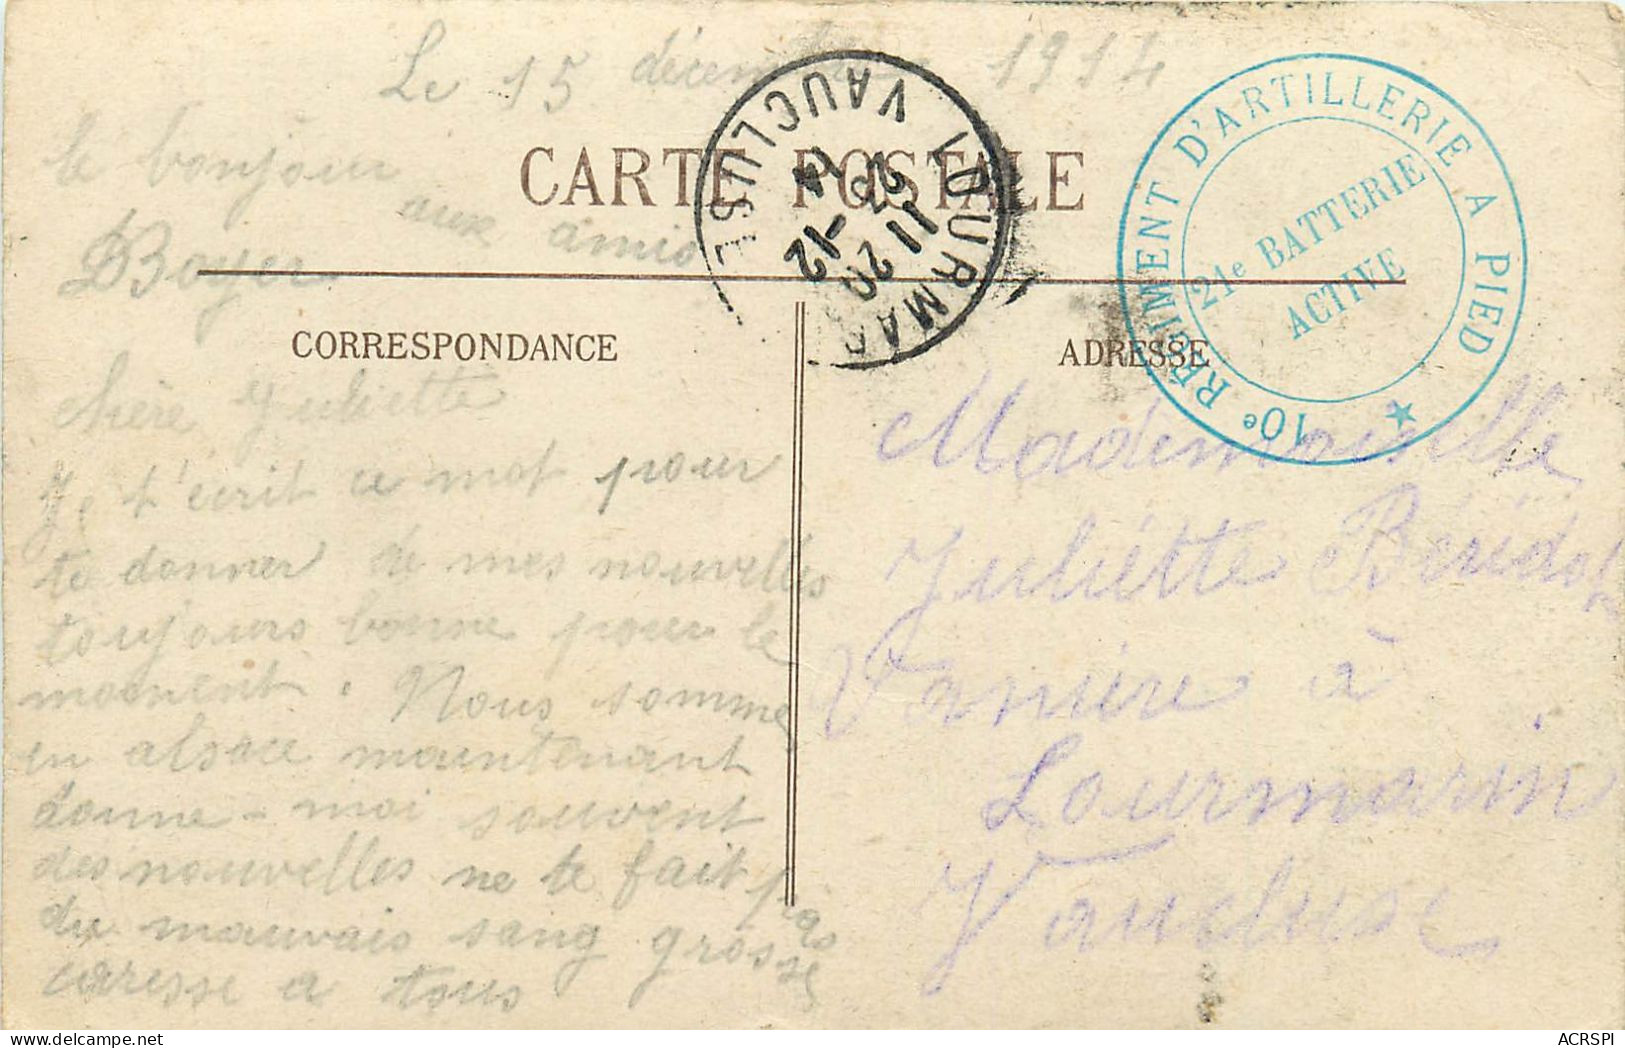 Le 15 décembre 1914
le bonjour
aux amis
Boyer
CARTE POSTALE
LOURMARIN VAUCLUSE
11 20
-12
10e RÉGIMENT D'ARTILLERIE A PIED
21e BATTERIE
ACTIVE
CORRESPONDANCE
chère Juliette
Je t'ecrit ce mot pour
te donner de mes nouvelles
toujours bonne pour le
moment. Nous somme
en alsace maintenant
donne-moi souvent
des nouvelles ne te fait pas
du mauvais sang grosse
caresse a tous
ADRESSE
Mademoiselle
Juliétte
à
Lourmarin
Vaucluse
ACRSPI